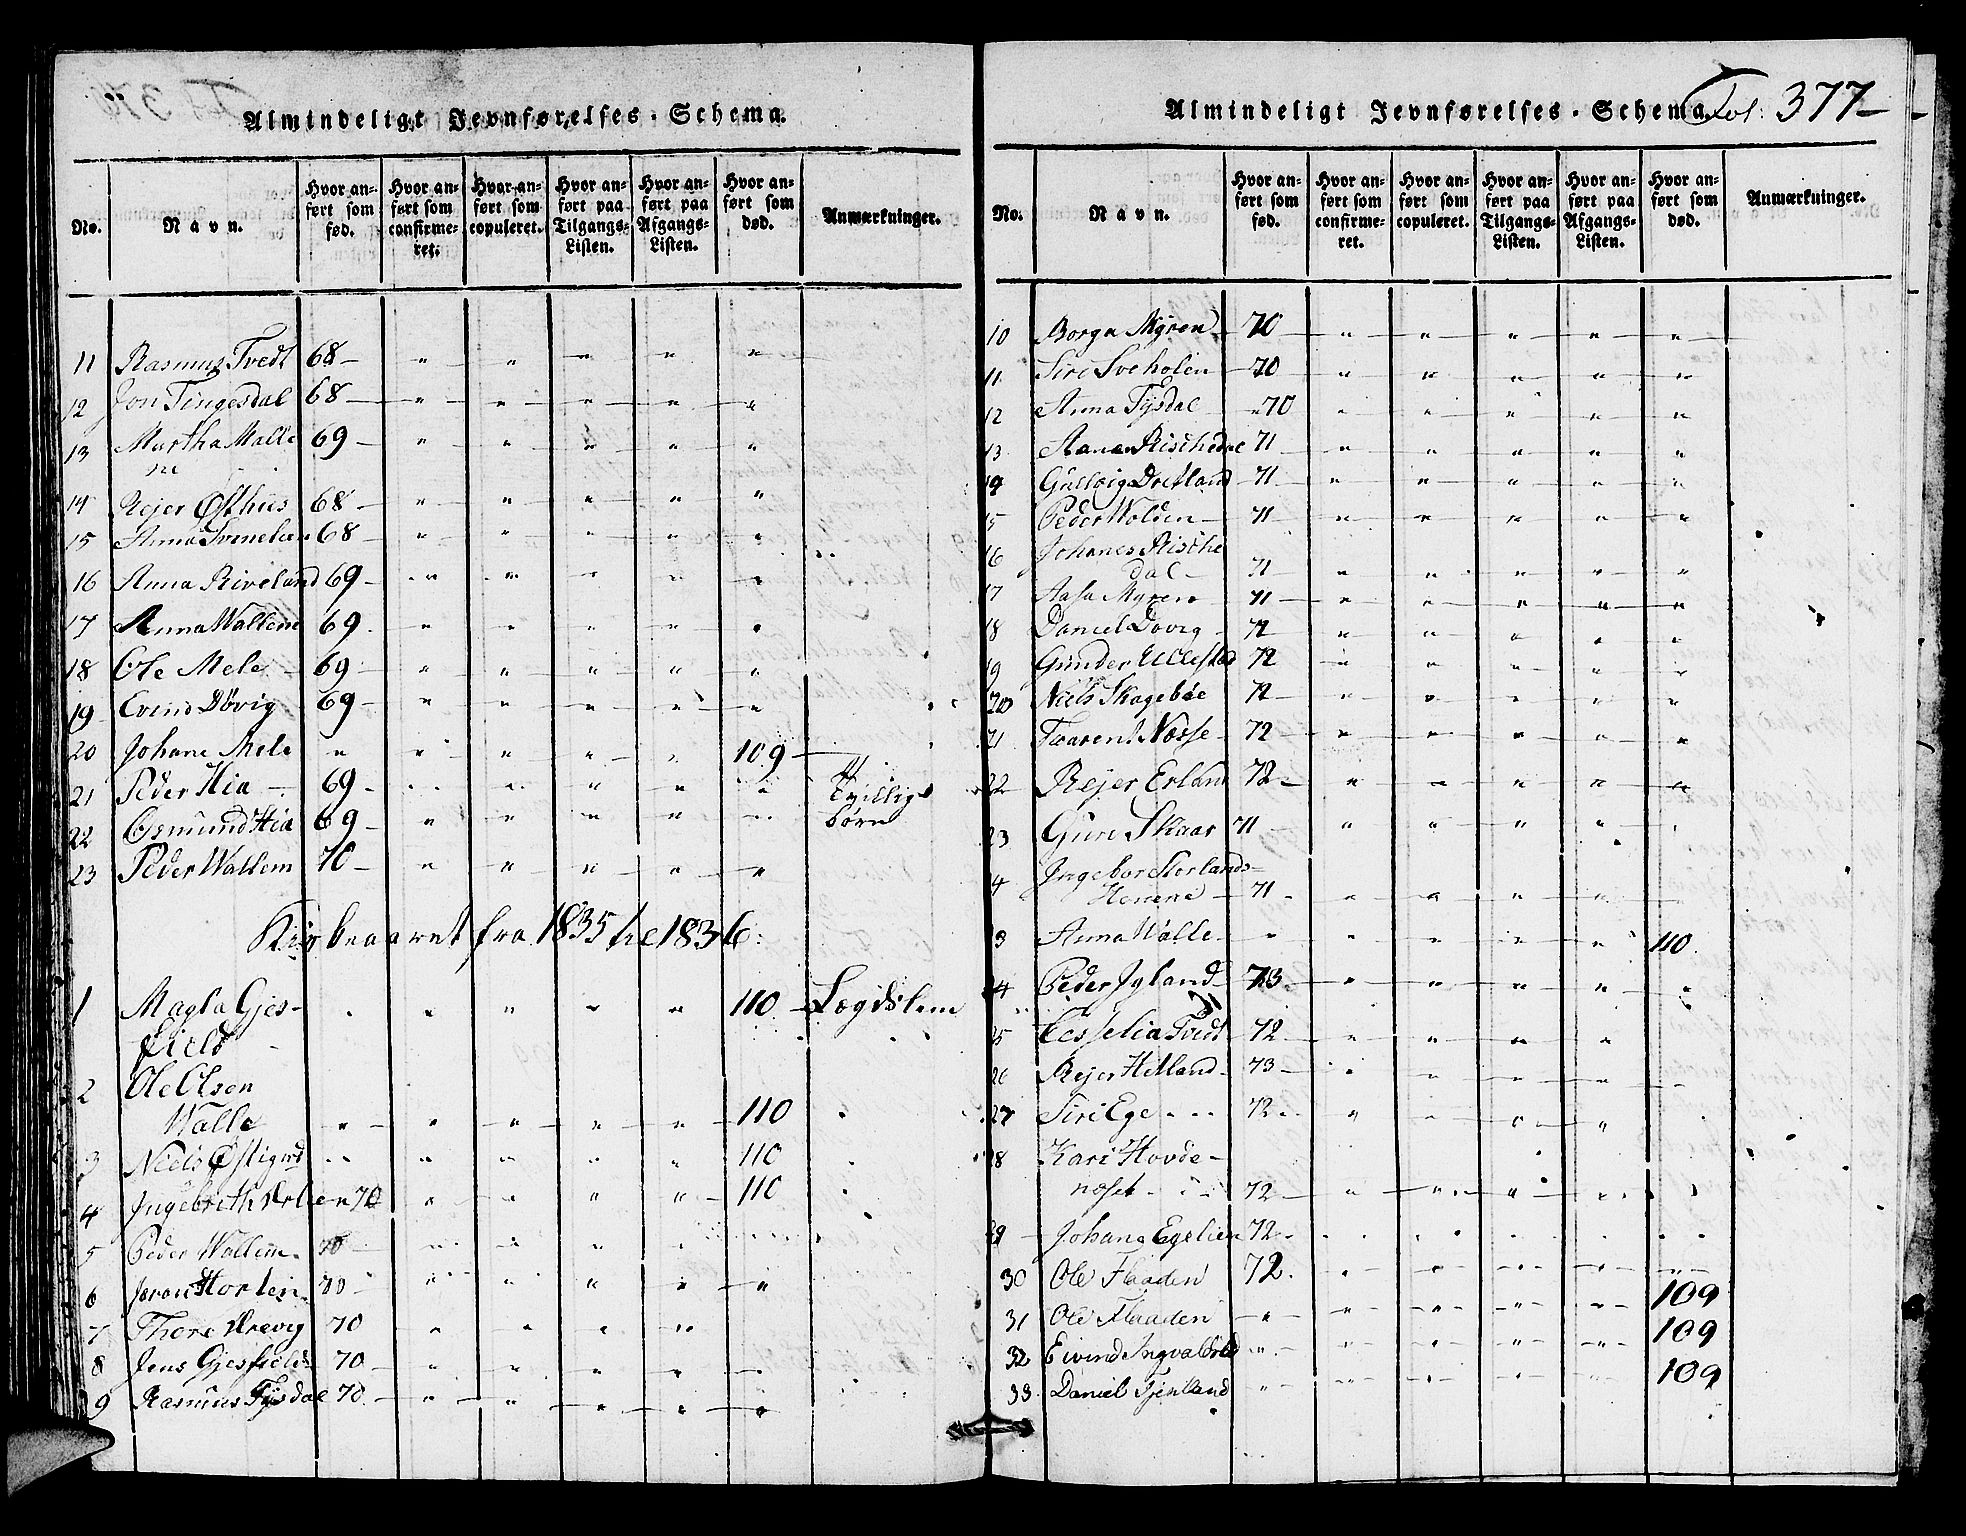 Almindeligt Jevnførelses-Schema.
No. | Navn. | Hvor anført som fød. | Hvor anført som confirmeret. | Hvor anført som copuleret. | Hvor anført paa Tilgangs-Listen. | Hvor anført paa Afgangs-Listen. | Hvor anført som død. | Anmærkninger.
11 Rasmus Tvedt 68 - " " " " "
12 Jon Tingesdal 68 - " " " " "
13 Martha Walle 69 - " " " " "
ne
14 Rejer Østhus 68 - " " " " "
15 Anna Svenelien 68 - " " " " "
16 Anna Riveland 69 - " " " " "
17 Anna Wallene 69 " " " " "
18 Ole Mele 69 - " " " " "
19 Evind Døvig 69 - " " " " "
20 Johane Mele " " " " " 109 -
21 Peder Hia - 69 - " " " " " Tvillige
22 Osmund Hia 69 - " " " " " børn
23 Peder Wallem 70 - " " " " "
Kirkeaaret fra 1835 til 1836.
1 Magla Gjes- " " " " " 110 - Lægdslem
field
2 Ole Olsen
Walle " " " " " 110
3 Niels Østigrd " " " " " 110
4 Ingebreth Ørlien 70 " " " " 110
5 Peder Wallem 70 " " " "
6 Joran Horlien 70 - " " " " "
7 Thore Drevig 70 " " " "
8 Jens Gjesfield 70 - " " " " "
9 Rasmus Tysdal 70 - " " " " "
Almindeligt Jevnførelses-Schema. Fol: 377
No. | Navn. | Hvor anført som fød. | Hvor anført som confirmeret. | Hvor anført som copuleret. | Hvor anført paa Tilgangs-Listen. | Hvor anført paa Afgangs-Listen. | Hvor anført som død. | Anmærkninger.
10 Borga Myren 70 - " " " " "
11 Siri Sveholen 70 " " " " "
12 Anna Tysdal 70 " " " " "
13 Anna Rischedal 71 " " " " "
14 Gullaig Dretland 71 " " " " "
15 Peder Wolden 71 " " " " "
16 Johanes Rische
dal 71 " " " " "
17 Aasa Myren 71 " " " " "
18 Daniel Dovig 72 " " " " "
19 Gunder Ullestad 72 " " " " "
20 Niels Skagebøe 72 " " " " "
21 Taaren Næsse 72 " " " " "
22 Rejer Erland 72 - " " " " "
23 Guri Skaar 71 " " " "
4 Ingebor Sterlands-
Henene 71 " " " " "
3 Anna Walle " " " " " 110
24 Peder Jyland 73 " " " " "
25 Cesselia Tvedt 72 " " " "
26 Rejer Hetland 73 " " " " "
27 Siri Ege 72 " " " "
28 Kari Hovde-
noset 72 " " " " "
29 Johane Egelien 72 " " " " "
30 Ole Flaaden 72 " " " " "
31 Ole Flaaden " " " " " 109
32 Eivind Ingvaldstad " " " " " 109
33 Daniel Tjenland " " " " " 109